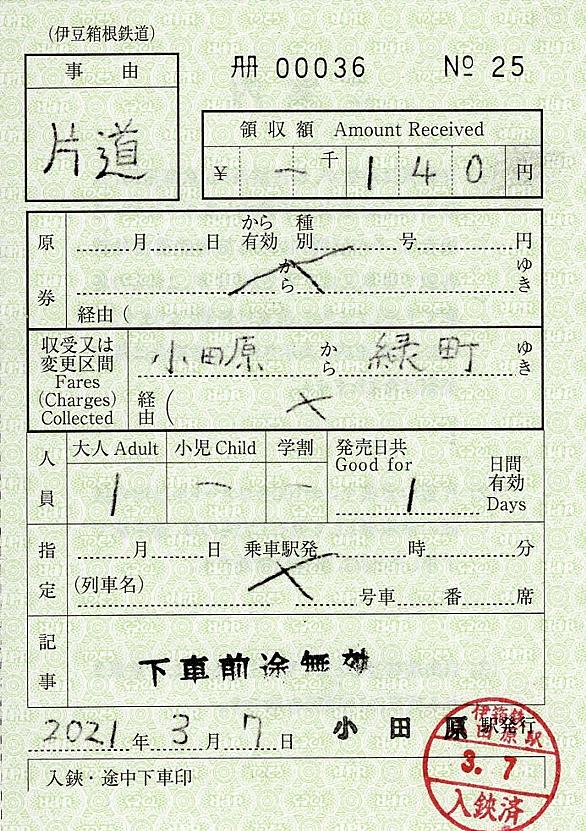 （伊豆箱根鉄道）
冊 00036 № 25
事由
片道
領収額 Amount Received
￥ 千 1 4 0 円
原券
月 日 から有効 種別 号 円
から ゆき
経由（
収受又は変更区間 Fares (Charges) Collected
小田原 から 緑町 ゆき
経由（
人員
大人 Adult 小児 Child 学割 発売日共 Good for 日間有効 Days
1 － － 1
指定
月 日 乗車駅発 時 分
(列車名) 号車 番 席
記事
下車前途無効
2021 年 3 月 7 日 小田原 駅発行
入鋏・途中下車印
伊箱鉄
田原駅
3. 7
入鋏済